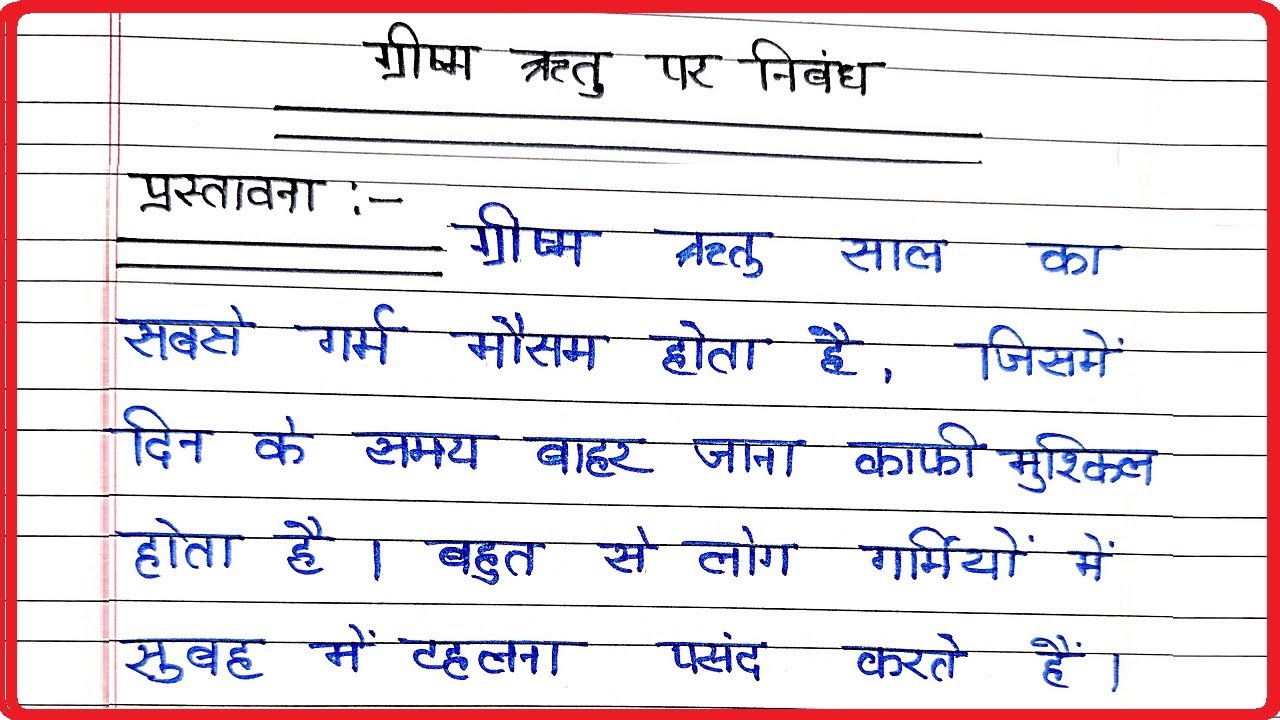 ग्रीष्म ऋतु पर निबंध
प्रस्तावना :-
ग्रीष्म ऋतु साल का
सबसे गर्म मौसम होता है, जिसमें
दिन के समय बाहर जाना काफी मुश्किल
होता है। बहुत से लोग गर्मियों में
सुवह में टहलना पसंद करते हैं।